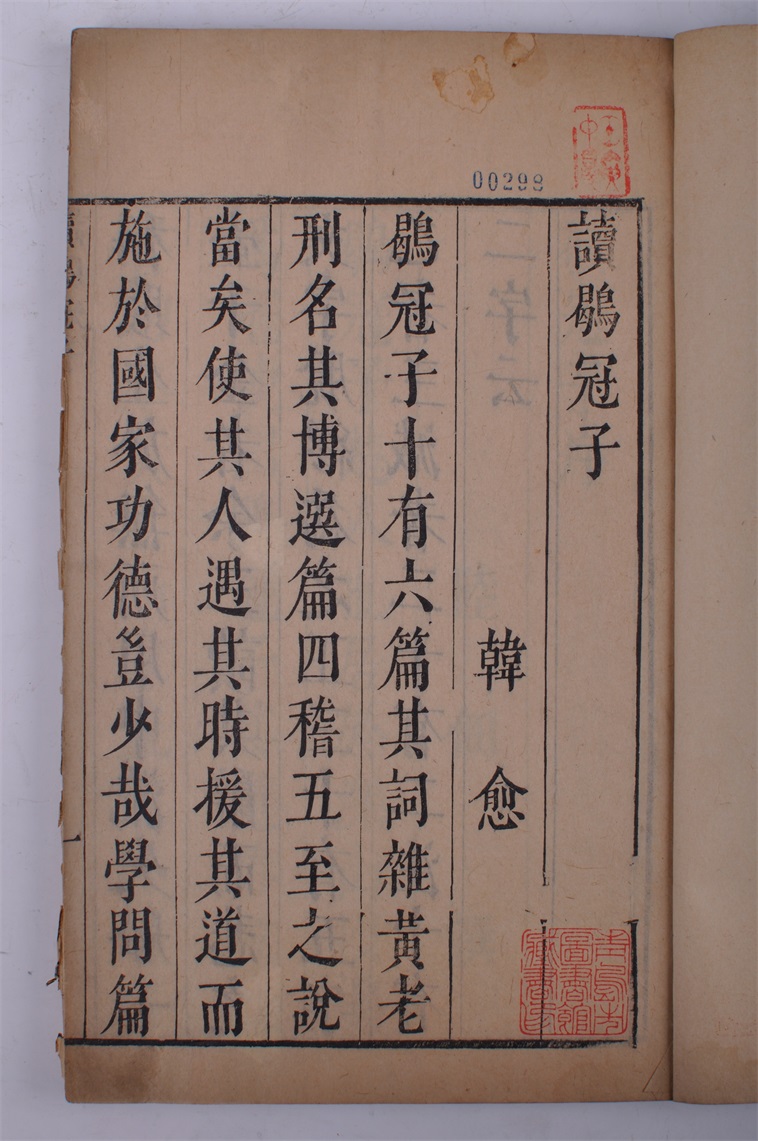 讀鶡冠子
韓愈
鶡冠子十有六篇其詞雜黃老
刑名其博選篇四稽五至之說
當矣使其人遇其時援其道而
施於國家功德豈少哉學問篇
00298